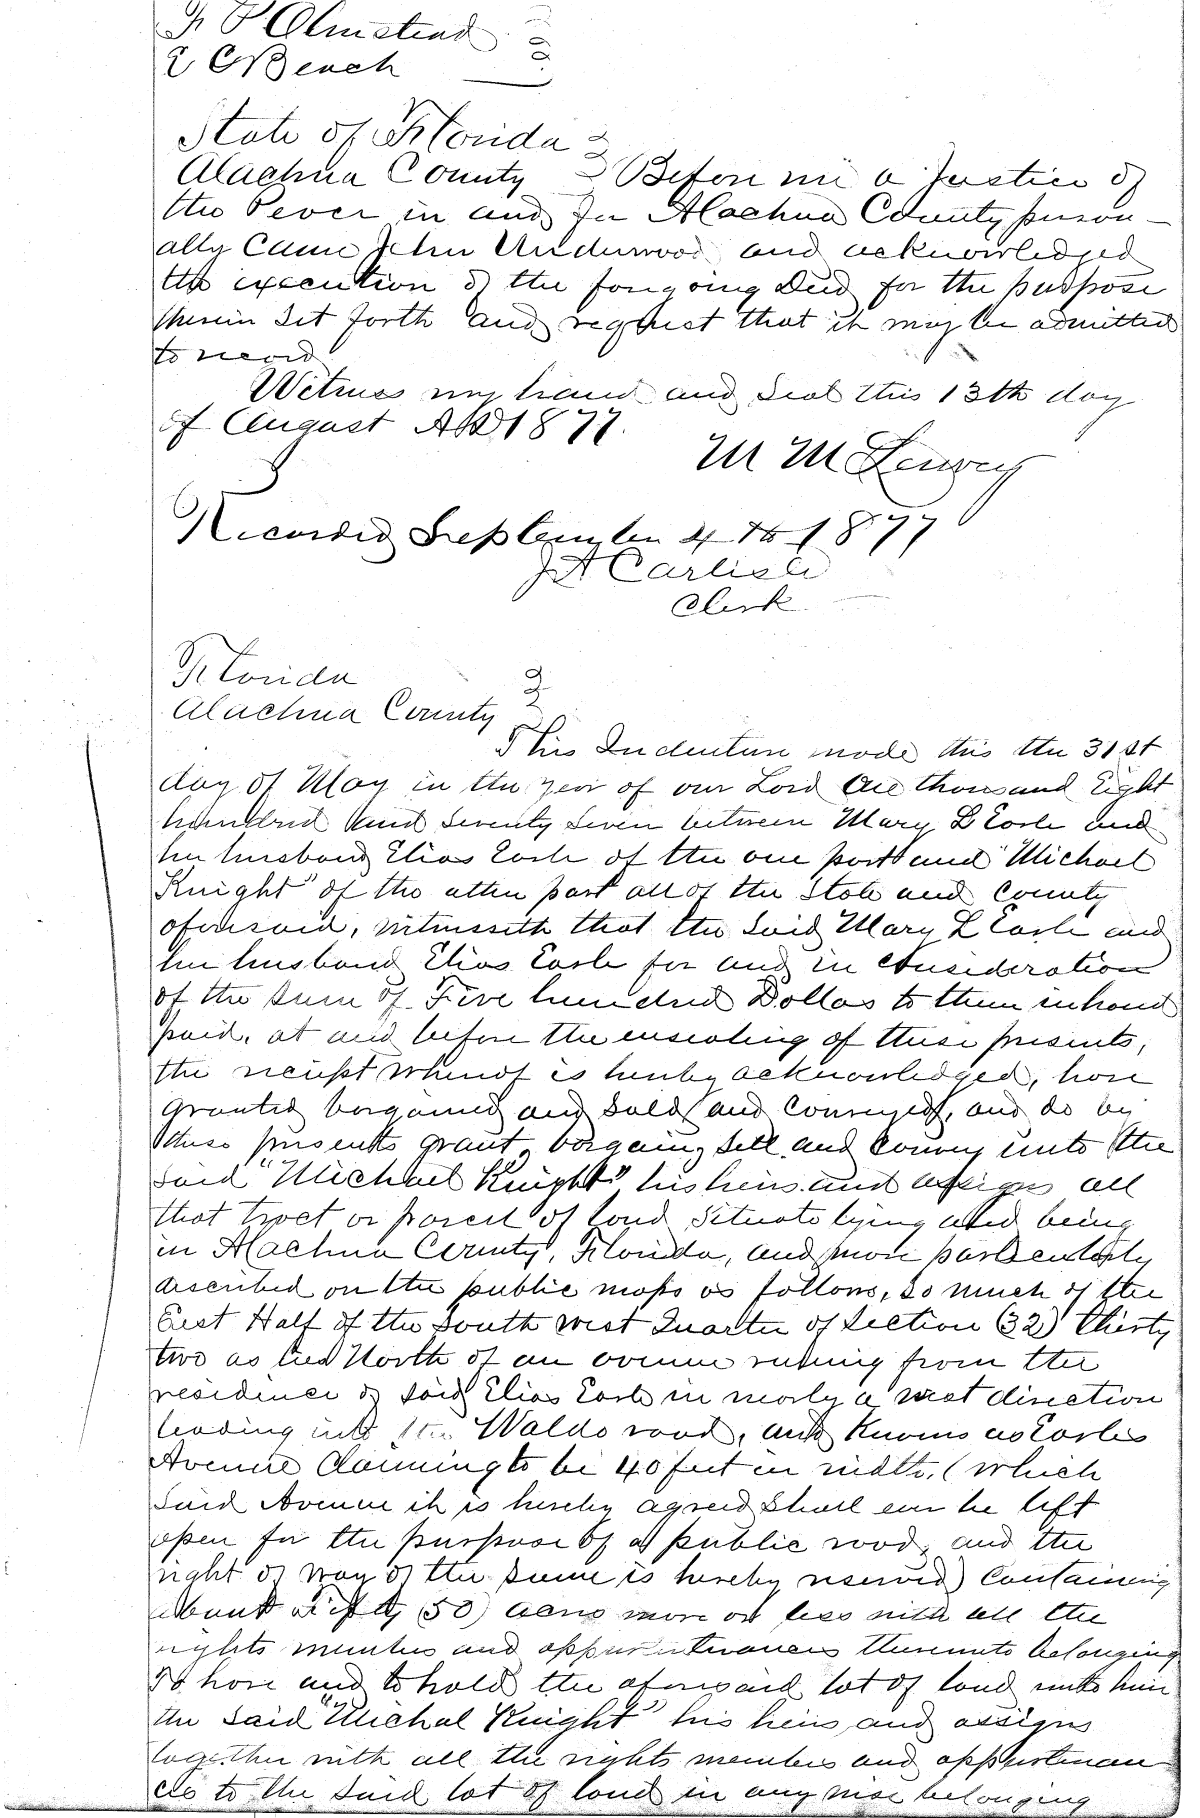 F P Olmstead
E C Beach
State of Florida
Alachua County Before me a Justice of
the Peace in and for Alachua County person-
ally came John Underwood and acknowledged
the execution of the foregoing Deed for the purpose
therein set forth and request that it may be admitted
to record
Witness my hand and Seal this 13th day
of August AD 1877.
M M Lewey
Recorded September 4th 1877
J A Carlisle
Clerk
Florida
Alachua County
This Indenture made this the 31st
day of May in the year of our Lord One thousand Eight
hundred and Seventy Seven between Mary L Earle and
her husband Elias Earle of the one part and "Michael
Knight" of the other part all of the State and County
aforesaid, witnesseth that the Said Mary L Earle and
her husband Elias Earle for and in consideration
of the sum of Five hundred Dollas to them in hand
paid, at and before the ensealing of these presents,
the receipt whereof is hereby acknowledged, have
granted bargained and Sold and Conveyed, and do by
these presents grant, bargain, Sell and Convey unto the
said "Michael Knight" his heirs and assigns all
that tract or parcel of land Situate lying and being
in Alachua County, Florida, and more particularly
described on the public maps as follows, So much of the
East Half of the South west Quarter of Section (32) Thirty
two as lies North of an avenue running from the
residence of said Elias Earle in nearly a west direction
leading into the Waldo road, and Known as Earles
Avenue Claiming to be 40 feet in width, (which
said Avenue it is hereby agreed Shall ever be left
open for the purpose of a public road, and the
right of way of the same is hereby reserved) Containing
about Fifty (50) acres more or less with all the
rights members and appurtenances thereunto belonging
To have and to hold the aforesaid lot of land unto him
the said "Michal Knight" his heirs and assigns
together with all the rights members and appurtenan
ces to the said lot of land in any wise belonging